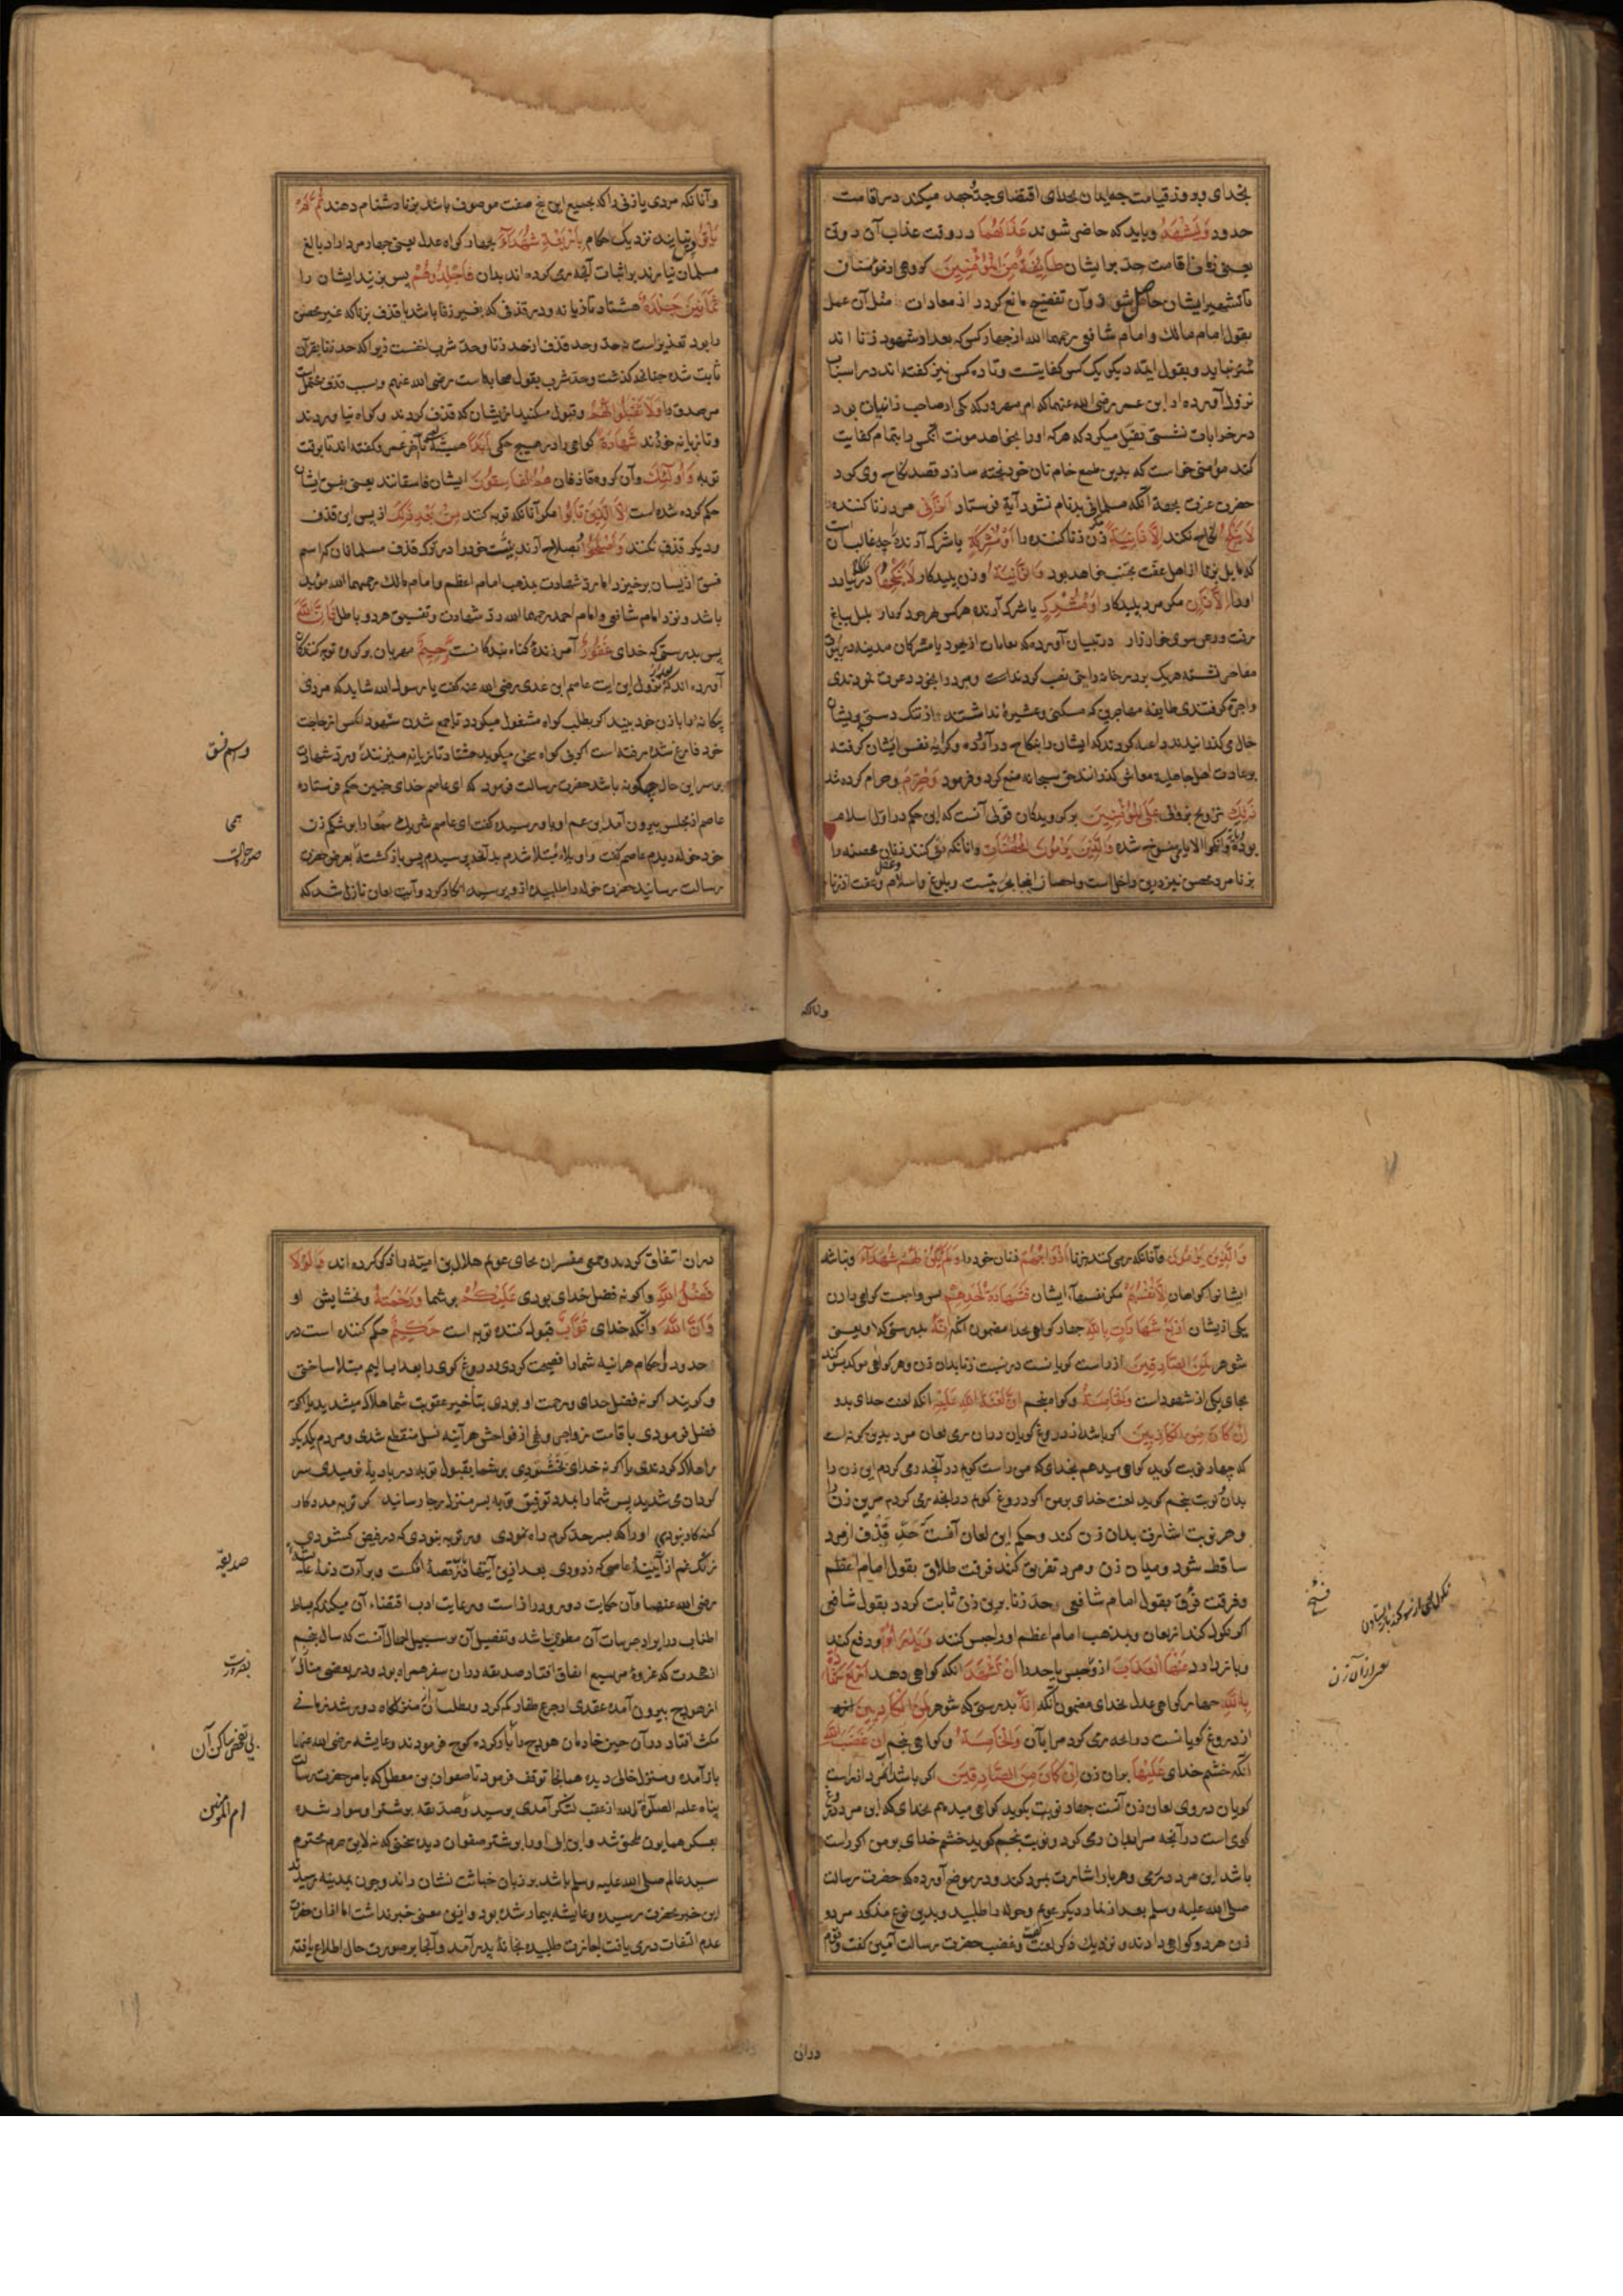 بخدای و بروز قیامت چه ایمان بخدای اقتضای جد و جهد میکند در اقامت
حدود وَلْيَشْهَدْ و باید که حاضر شوند عَذَابَهُمَا در وقت عذاب آن دو تن
یعنی زمان اقامت حد بر ایشان طَائِفَةٌ مِنَ الْمُؤْمِنِينَ گروهی از مؤمنان
تا تشهیر ایشان حاصل شود و آن تفضیح مانع گردد از معاودت مثل آن عمل
بقول امام مالک و امام شافعی رحمهما الله از چهار کس که بعدد شهود زنا اند
کم نباید و بقول ایمه دیگر یک کس کفایتست و تا ده کس نیز گفته اند در اسباب
نزول آورده از ابن عمر رضی الله عنهما که ام مهزول که یکی از صاحب زانیان بود
در خرابات نشستی تقبل میکرد که هر که او را بخواهد مونت آنکس را بتمام کفایت
کند مؤمنی خواست که بدین طمع خام نان خود پخته سازد قصد نکاح وی کرد
حضرت عزت بجهة آنکه مسلمانی بدنام نشود آیة فرستاد اَلزَّانِی مرد زنا کننده
لَا يَنْكِحُ نکاح نکند اِلَّا زَانِيَةً مگر زن زنا کننده را اَوْ مُشْرِكَةً یا شرک آرنده را چه غالب آن است
که مایل بزنا از اهل عفت مجتنب خواهد بود وَالزَّانِيَةُ و زن پلیدکار لَا يَنْكِحُهَا در نکاح نیارد
او را اِلَّا زَانٍ مگر مرد پلیدکار اَوْ مُشْرِكٌ یا شرک آرنده هر کسی فراخور کردار بلبل بباغ
رفت و زغن سوی خارزار در تبیان آورده که بغایات از یهود یا مشرکان مدینه در بیوت
مفاخر نشسته هر یک بر در خانه رایتی نصب کردندی و مردم را بخود دعوت نمودندی
و اجرة گرفتندی طایفهٔ مهاجرین که مسکنی و عشیرهٔ نداشتند و از تنگ دستی پریشان
حال می گذرانیدند داعیه کردند که ایشان را بنکاح در آورده و کرایهٔ نفس ایشان گرفته
بر عادت اهل جاهلیه معاش گذرانند حق سبحانه منع کرد و فرمود وَحُرِّمَ و حرام کرده شد
ذٰلِكَ تزویج زوانی عَلَى الْمُؤْمِنِينَ بر گرویدگان قولی آنست که این حکم در اول اسلام
بوده بآیة وانکحوا الایامی منسوخ شده وَالَّذِينَ يَرْمُونَ الْمُحْصَنَاتِ و آنانکه رمی کنند زنان محصنه را
بزنا مرد محصن نیز درین داخل است و احصان اینجا بحریتست و بلوغ و عقل و اسلام و عفت از زنا
وآنانکه
و آنانکه مردی یا زنی را که بجمیع این پنج صفت موصوف باشد بزنا دشنام دهند ثُمَّ لَمْ
يَأْتُوا پس نیایند نزدیک حکام بِأَرْبَعَةِ شُهَدَاءَ بچهار گواه عدل یعنی چهار مرد آزاد بالغ
مسلمان نیارند بر اثبات آنچه رمی کرده اند بدان فَاجْلِدُوهُمْ پس بزنید ایشان را
ثَمَانِينَ جَلْدَةً هشتاد تازیانه و در قذفی که بغیر زنا باشد یا قذف بزنا که غیر محصن
را بود تعذیر است نه حد و حد قذف از حد زنا و حد شرب اخفست زیرا که حد زنا بقرآن
ثابت شده چنانچه گذشت و حد شرب بقول صحابه است رضی الله عنهم و سبب قذف محتمل است
مر صدق را وَلَا تَقْبَلُوا لَهُمْ و قبول مکنید از ایشان که قذف کردند و گواه نیاوردند
و تازیانه خوردند شَهَادَةً گواهی را در هیچ حکمی اَبَدًا همیشه تا آخر عمر و گفته اند تا بوقت
توبه وَأُولٰئِكَ و آن گروه قاذفان هُمُ الْفَاسِقُونَ ایشان فاسقانند یعنی بفسق ایشان
حکم کرده شده است اِلَّا الَّذِينَ تَابُوا مگر آنانکه توبه کنند مِنْ بَعْدِ ذٰلِكَ از پس این قذف
و دیگر قذف نکنند وَأَصْلَحُوا و بصلاح آرند نیت خود را در ترک قذف مسلمانان که اسم
فسق از ایشان برخیزد اما رد شهادت بمذهب امام اعظم و امام مالک رحمهما الله مؤبد
باشد و نزد امام شافعی و امام احمد رحمهما الله رد شهادت و تفسیق هر دو باطل فَإِنَّ اللَّهَ
پس بدرستی که خدای غَفُورٌ آمرزندهٔ گناه بندگانست رَحِيمٌ مهربان بر گروه توبه کنندگان
آورده اند که بعد از نزول این آیت عاصم ابن عدی رضی الله عنه گفت یا رسول الله شاید که مردی
بیگانه را با زن خود بیند اگر بطلب گواه مشغول میگردد تا جمع شدن شهود آنکس از حاجت
خود فارغ شده رفته است اگر بی گواه سخن میگوید هشتاد تازیانه میزنند و رد شهادت
بر سر این حال چگونه باشد حضرت رسالت فرمود که ای عاصم خدای چنین حکم فرستاده
عاصم از مجلس بیرون آمد ابن عم او باو رسیده گفت ای عاصم شریک سحما را بر شکم زن
خود خوله دیدم عاصم گفت واویلاه مبتلا شدم بدانچه پرسیدم پس بازگشته بعرض حضرت
رسالت رسانید حضرت خوله را طلبیده ازو پرسید انکار کرد و آیت لعان نازل شد که
و اسم فسق
صورت حالت
وَالَّذِينَ يَرْمُونَ و آنانکه رمی کنند بزنا اَزْوَاجَهُمْ زنان خود را وَلَمْ يَكُنْ لَهُمْ شُهَدَاءُ و نباشد
ایشانرا گواهان اِلَّا أَنْفُسُهُمْ مگر نفسهاء ایشان فَشَهَادَةُ أَحَدِهِمْ پس واجبست گواهی دادن
یکی از ایشان أَرْبَعُ شَهَادَاتٍ بِاللَّهِ چهار گواهی بخدا مضمون آنکه إِنَّهُ بدرستی که او یعنی
شوهر لَمِنَ الصَّادِقِينَ از راست گویانست در نسبت زنا بدان زن و هر گواهی موکد بسوگند
بجای یکی از شهود است وَالْخَامِسَةُ و گواه پنجم أَنَّ لَعْنَةَ اللَّهِ عَلَيْهِ آنکه لعنت خدای برو
إِنْ كَانَ مِنَ الْكَاذِبِينَ اگر باشد از دروغ گویان در آن رمی لعان مرد بدین گونه است
که چهار نوبت گوید گواهی میدهم بخدای که من راست گویم در آنچه رمی کردم این زن را
بدان نوبت پنجم گوید لعنت خدای بر من اگر دروغ گویم در آنچه رمی کردم مر این زن را
و هر نوبت اشارت بدان زن کند و حکم این لعان آنست که حد قذف از مرد
ساقط شود و میان زن و مرد تفریق کنند فرقت طلاق بقول امام اعظم
و فرقت فسخ بقول امام شافعی و حد زنا بر زن ثابت گردد بقول شافعی
اگر نکول کند از لعان و بمذهب امام اعظم او را حبس کنند وَيَدْرَؤُا و دفع کند
و باز دارد عَنْهَا الْعَذَابَ ازو حبس یا حد را أَنْ تَشْهَدَ آنکه گواهی دهد أَرْبَعَ شَهَادَاتٍ
بِاللَّهِ چهار گواهی عدل بخدای مضمون آنکه إِنَّهُ بدرستی که شوهر لَمِنَ الْكَاذِبِينَ
از دروغ گویانست در آنچه رمی کرد مرا بآن وَالْخَامِسَةَ و گواهی پنجم أَنَّ غَضَبَ اللَّهِ
آنکه خشم خدای عَلَيْهَا بر آن زن إِنْ كَانَ مِنَ الصَّادِقِينَ اگر باشد آنمرد از راست
گویان در روی لعان زن آنست چهار نوبت بگوید گواهی میدهم بخدای که این مرد دروغ
گوی است در آنچه مرا بدان رمی کرد و نوبت پنجم گوید خشم خدای بر من اگر راست
باشد این مرد در رمی و هر بار اشارت بمرد کند و در موضح آورده که حضرت رسالت
صلی الله علیه وسلم بعد از نماز دیگر عویمر و خوله را طلبید و بدین نوع مذکور مرد و
زن هر دو گواهی دادند و نزدیک ذکر لعنت و غضب حضرت رسالت آمین گفت و قوم
فسخ
نکول یعنی از سوگند باز ایستادن
در آن
در آن اتفاق کردند و جمعی مفسران بجای عویمر هلال بن امیه را ذکر کرده اند وَلَوْلَا
فَضْلُ اللَّهِ و اگر نه فضل خدای بودی عَلَيْكُمْ بر شما وَرَحْمَتُهُ و بخشایش او
وَأَنَّ اللَّهَ و آنکه خدای تَوَّابٌ قبول کننده توبه است حَكِيمٌ حکم کننده است در
حدود و احکام هر آینه شما را فضیحت کردی و دروغ گوی را بعذاب الیم مبتلا ساختی
و گویند اگر نه فضل خدای و رحمت او بودی بتأخیر عقوبت شما هلاک میشدید یا اگر نه
فضل فرمودی باقامت زواجر و نهی از فواحش هر آینه نسل منقطع شدی و مردم یکدیگر
را هلاک کردندی یا اگر نه خدای بخشودی بر شما بقبول توبه در بادیهٔ نومیدی سر
گردان می شدید پس شما را بمدد توفیق توبه بسر منزل رجا رسانید گر توبه مددکار
گنه کار نبودی او را که بسر حد کرم راه نمودی ور توبه نبودی که در فیض گشودی
زنگ غم از آیینهٔ عاصی که زدودی بعد ازین آیتها در قصهٔ افکست و برآءت ذمهٔ عایشه
رضی الله عنها و آن حکایت دور و دراز است و رعایت ادب اقتضاء آن میکند که بساط
اطناب در ایراد جزئیات آن مطوی باشد و تفصیل آن بر سبیل اجمال آنست که سال پنجم
از هجرت که غزوهٔ مریسیع اتفاق افتاد صدیقه در آن سفر همراه بود و در بعضی منازل
از هودج بیرون آمده عقدی از جزع ظفار گم کرد و بطلب آن متزلگاه دور شد زمانی
مکث افتاد در آن حین خادمان هودج را بار کرده کوچ فرمودند و عایشه رضی الله عنها
باز آمده و منزل خالی دیده همانجا توقف فرمود تا صفوان بن معطل که بامر حضرت رسالت
پناه علیه الصلوة والسلام از عقب لشکر آمدی برسید و صدیقه بر شتر او سوار شده
بعسکر همایون ملحق شد و ابن ابی او را بر شتر صفوان دیده سخنی که نه لایق حرم محترم
سید عالم صلی الله علیه وسلم باشد بر زبان خباثت نشان راند و چون بمدینه رسیدند
این خبر بحضرت رسیده و عایشه بیمار شده بود و ازین معنی خبر نداشت اما از آن حضرت
عدم التفات دری یافت اجازت طلبیده بخانهٔ پدر آمد و آنجا بر صورت حال اطلاع یافته
صدیقه
بضرورت
ام المؤمنین